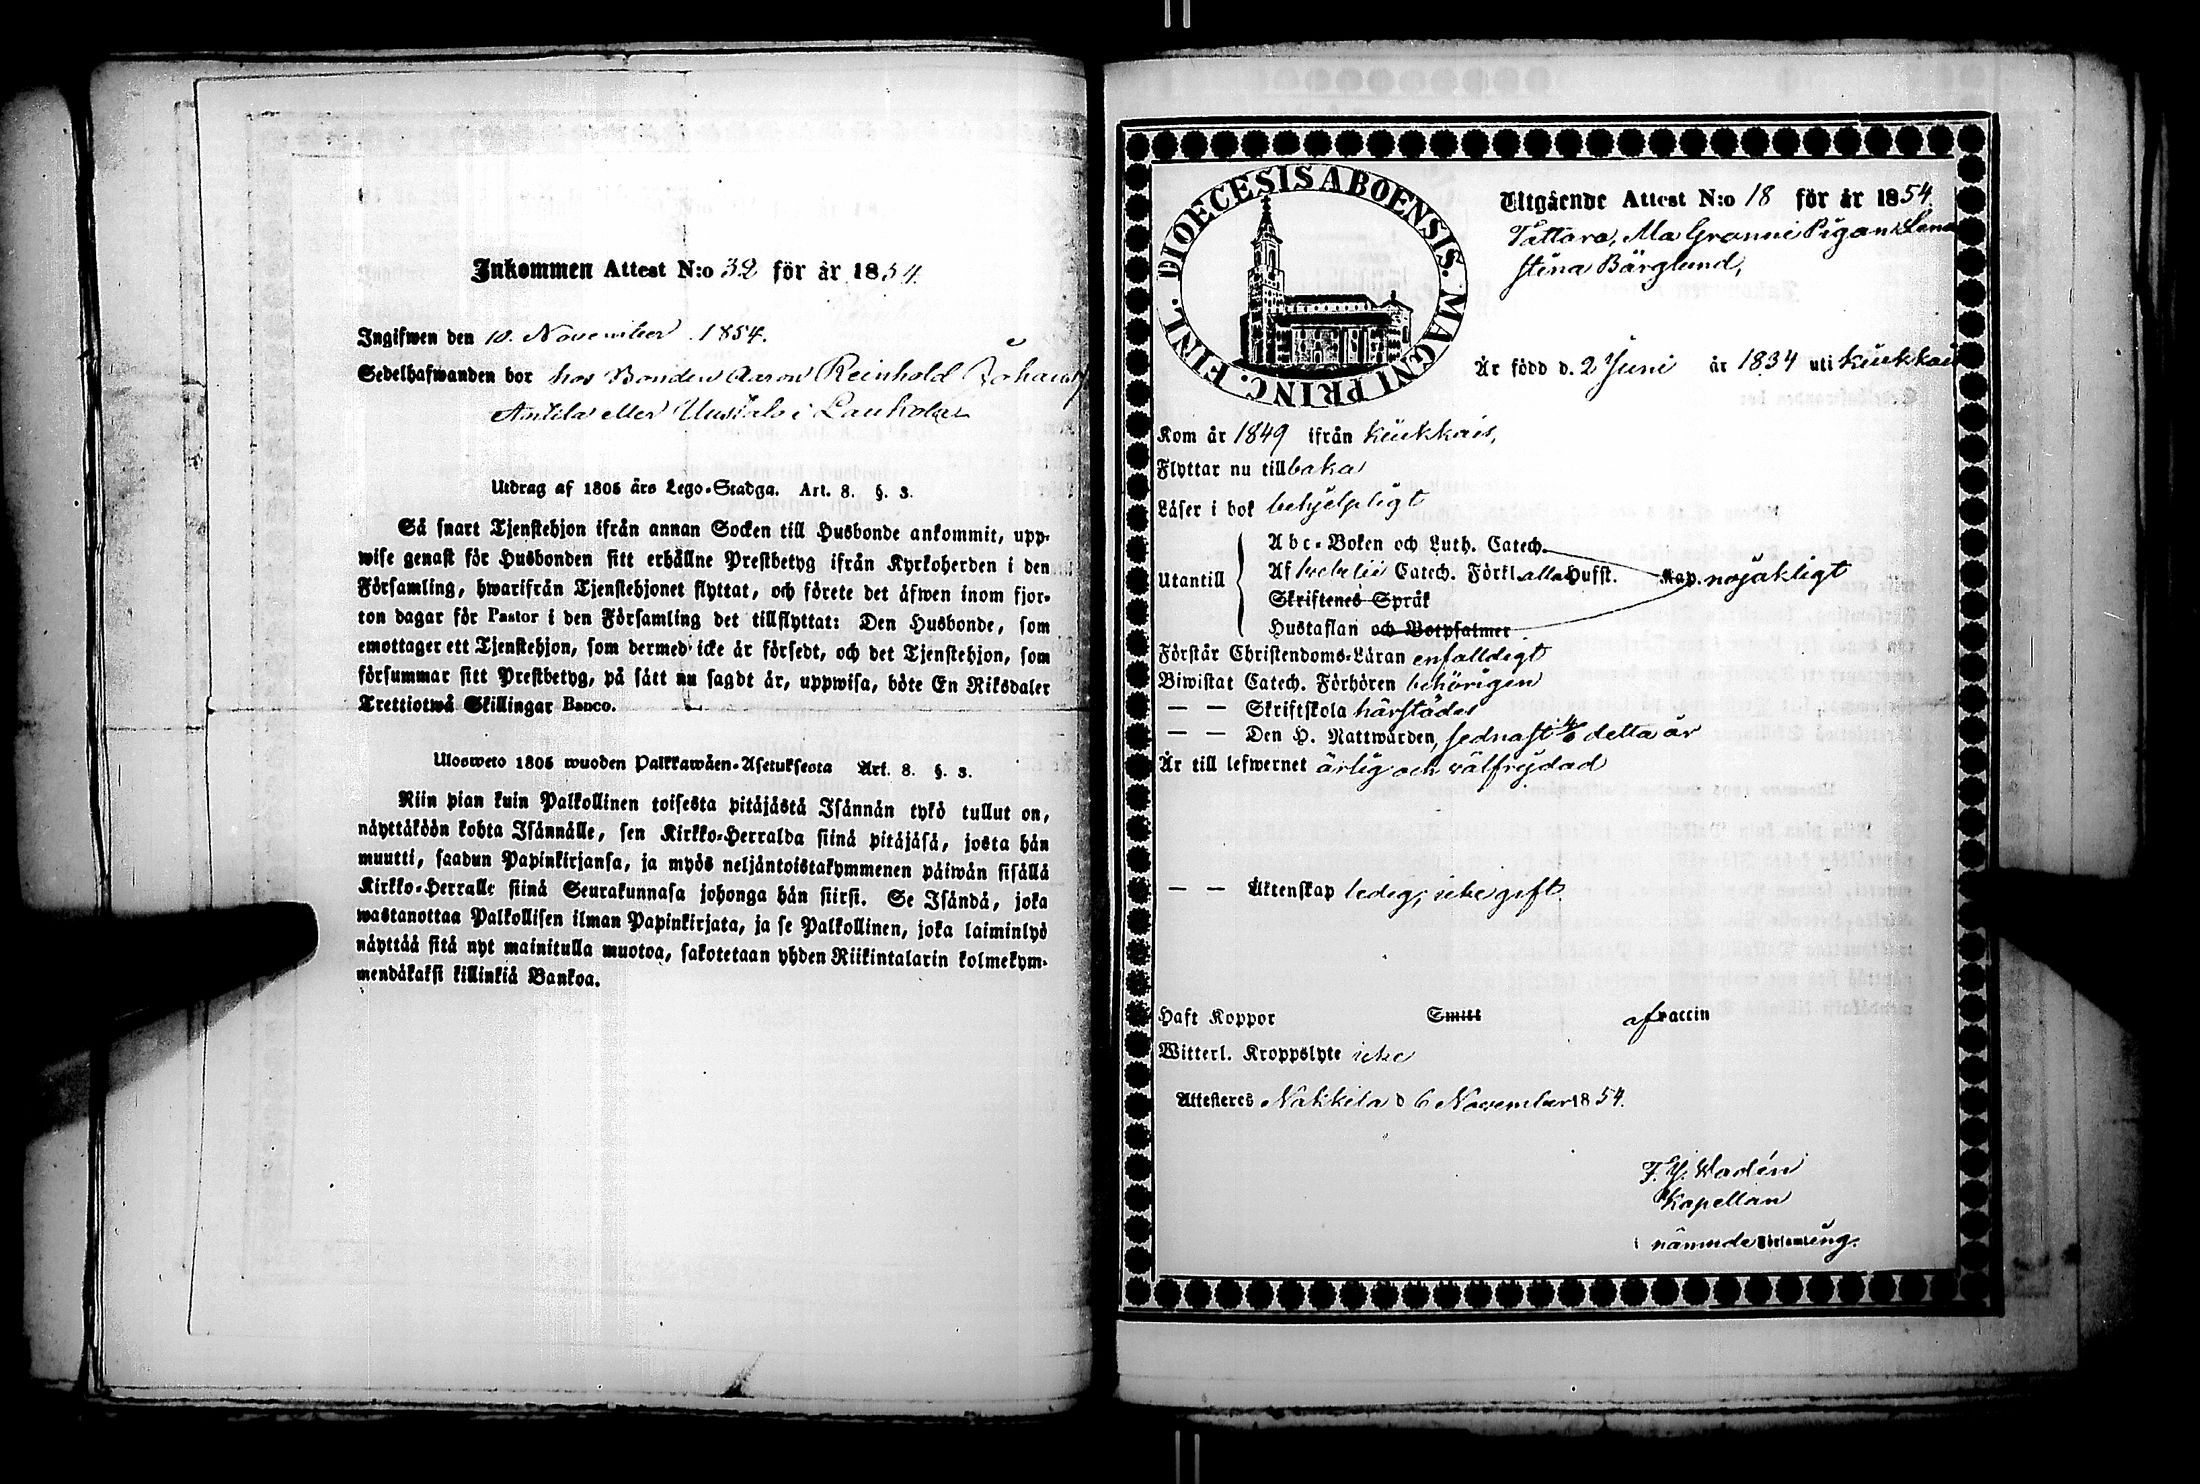 Inkommen Attest N:o 32 för år 1854.
Ingifwen den 10. November 1854.
Sedelhafwanden bor hos Bonden Aaron Reinhold Johans
Anttila eller Uusitalo i Lauhola
Utdrag af 1805 års Lego-Stadga. Art. 8. §. 3.
Så snart Tjenstehjon ifrån annan Socken till Husbonde ankommit, upp-
wise genast för Husbonden sitt erhållne Prestbetyg ifrån Kyrkoherden i den
Församling, hwarifrån Tjenstehjonet flyttat, och förete det äfwen inom fjor-
ton dagar för Pastor i den Församling det tillflyttat: Den Husbonde, som
emottager ett Tjenstehjon, som dermed icke är försedt, och det Tjenstehjon, som
försummar sitt Prestbetyg, på sätt nu sagdt är, uppwisa, böte En Riksdaler
Trettiotwå Skillingar Banco.
Ulosweto 1805 wuoden Palkkawäen-Asetuksesta Art. 8. §. 3.
Niin pian kuin Palkollinen toisesta pitäjästä Isännän tykö tullut on,
näyttäköön kohta Isännälle, sen Kirkko-Herralda siinä pitäjäsä, josta hän
muutti, saadun Papinkirjansa, ja myös neljäntoistakymmenen päiwän sisällä
Kirkko-Herralle siinä Seurakunnasa johonga hän siirsi. Se Isändä, joka
wastanottaa Palkollisen ilman Papinkirjata, ja se Palkollinen, joka laiminlyö
näyttää sitä nyt mainitulla muotoa, sakotetaan yhden Riikintalarin kolmekym-
mendäkaksi killinkiä Bankoa.
DIOECESIS ABOENSIS. MAGNI PRINC. FINL.
Utgående Attest N:o 18 för år 1854.
Tattara, Ma Granni Pigan Lena
Stina Bärglund,
Är född d. 2 Juni år 1834 uti Kiukkais
Kom år 1849 ifrån Kiukkais,
Flyttar nu tillbaka
Läser i bok behjelpligt
Abc-Boken och Luth. Catech.
Utantill Af Svebelii Catech. Förkl. alla Hufst. Kap. nöjaktigt
Skriftenes Språk
Hustaflan och Botpsalmer
Förstår Christendoms-Läran enfalldigt
Biwistat Catech. Förhören behörigen
— — Skriftskola härstädes
— — Den H. Nattwarden, sednast 4/6 detta år
Är till lefwernet ärlig och välfrejdad
— — Äktenskap ledig, icke gift.
Haft Koppor Smitt af vaccin
Witterl. Kroppslyte icke
Attesteres Nakkila d 6 November 1854.
F. Y. Wadén
Kapellan
i nämnde Församling.